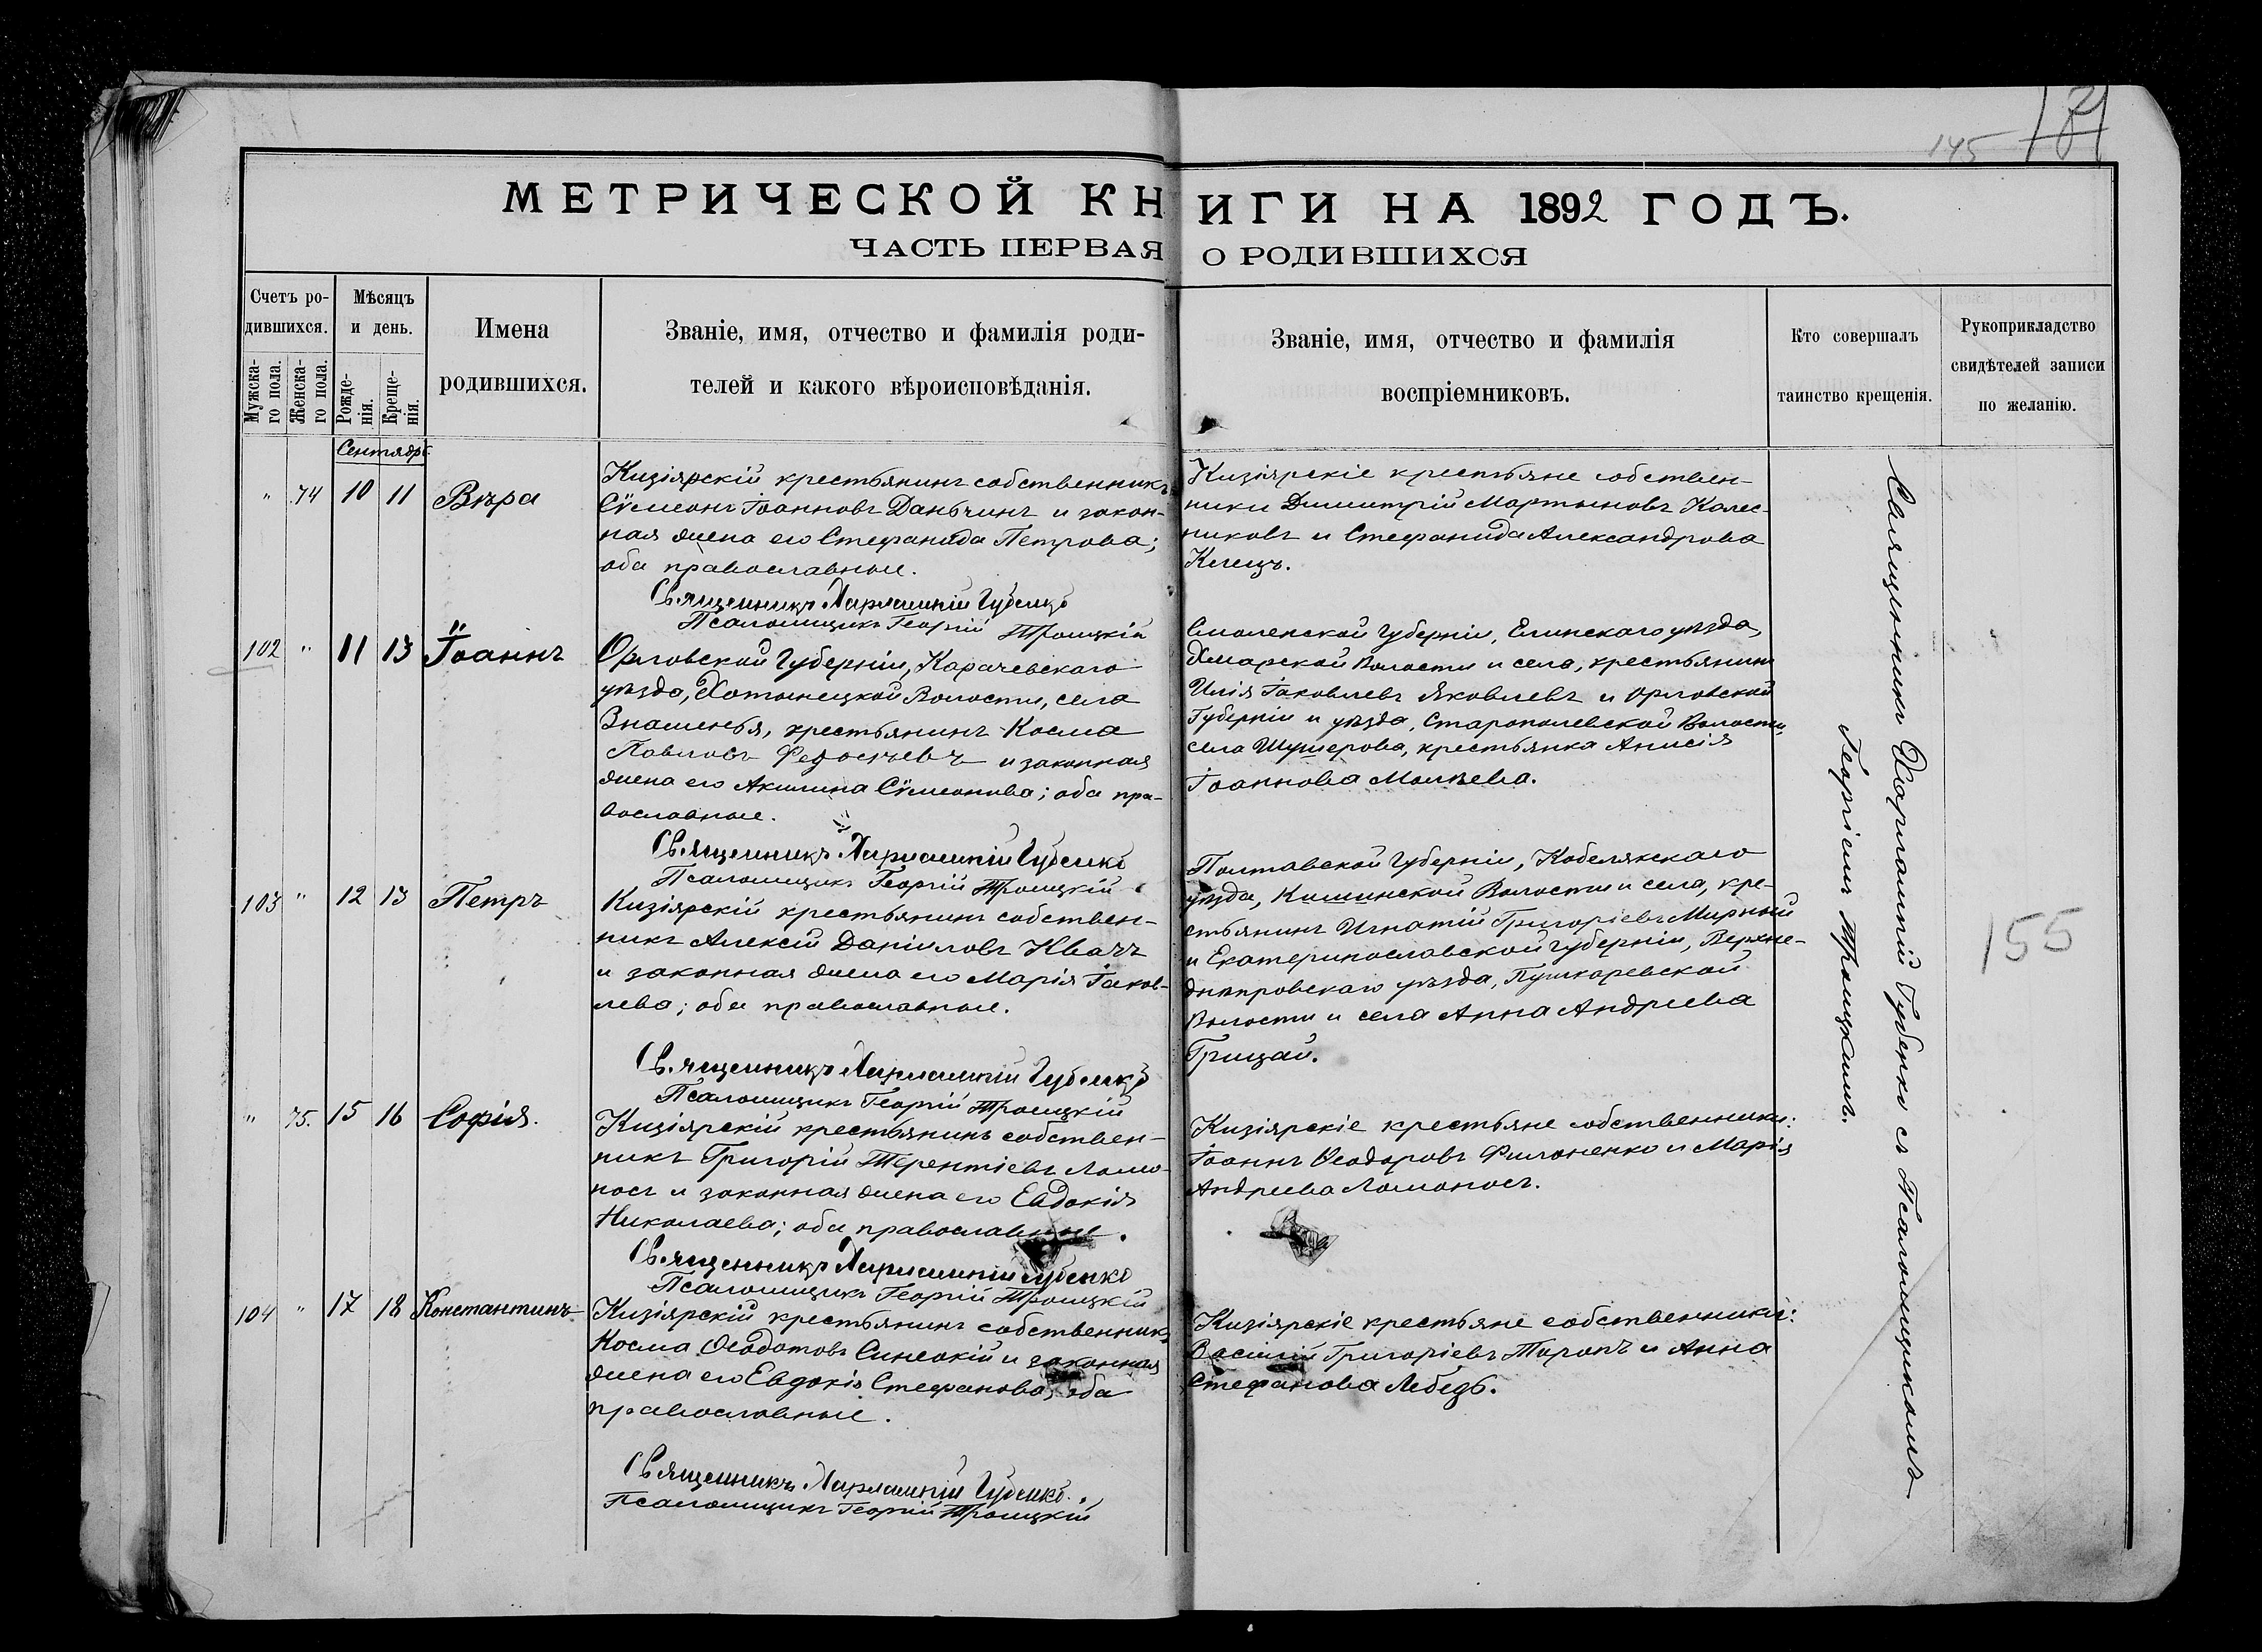 145
МЕТРИЧЕСКОЙ КНИГИ НА 1892 ГОДЪ.
ЧАСТЬ ПЕРВАЯ О РОДИВШИХСЯ
Счетъ ро-
дившихся.
Мужска-
го пола.
Женска-
го пола.
Мѣсяцъ
и день.
Рожде-
нія.
Креще-
нія.
Имена
родившихся.
Званіе, имя, отчество и фамилія роди-
телей и какого вѣроисповѣданія.
Званіе, имя, отчество и фамилія
воспріемниковъ.
Кто совершалъ
таинство крещенія.
Рукоприкладство
свидѣтелей записи
по желанію.
Сентябрь
" 74 10 11 Вѣра
Кизіярскій крестьянинъ собственникъ
Сѵмеонъ Іоанновъ Даньчинъ и закон-
ная жена его Стефанида Петрова;
оба православные.
Священникъ Харлампій Губенко
Псаломщикъ Георгій Троицкій
Кизіярскіе крестьяне собствен-
ники Димитрій Мартыновъ Колес-
никовъ и Стефанида Александрова
Клецъ.
102 " 11 13 Іоаннъ
Орловской Губерніи, Карачевскаго
уѣзда, Хотынецкой Волости, села
Знаменья, крестьянинъ Косма
Павловъ Федосѣевъ и законная
жена его Акилина Сѵмеонова; оба пра-
вославные.
Священникъ Харлампій Губенко
Псаломщикъ Георгій Троицкій
Смоленской Губерніи, Елинскаго уѣзда,
Хмарской Волости и села, крестьянинъ
Илія Іаковлевъ Яковлевъ и Орловской
Губерніи и уѣзда, Старополевской Волости,
села Шушерова, крестьянка Анисія
Іоаннова Молѣева.
103 " 12 13 Петръ
Кизіярскій крестьянинъ собствен-
никъ Алексій Даніиловъ Квачъ
и законная жена его Марія Іаков-
лева; оба православные.
Священникъ Харлампій Губенко
Псаломщикъ Георгій Троицкій
Полтавской Губерніи, Кобелякскаго
уѣзда, Кишинской Волости и села, кре-
стьянинъ Игнатій Григоріевъ Мирный
и Екатеринославской Губерніи, Верхне-
днѣпровскаго уѣзда, Пушкаревской
Волости и села Анна Андреева
Грицай.
" 75. 15 16 Софія.
Кизіярскій крестьянинъ собствен-
никъ Григорій Терентіевъ Ломо-
носъ и законная жена его Евдокія
Николаева; оба православные.
Священникъ Харлампій Губенко
Псаломщикъ Георгій Троицкій
Кизіярскіе крестьяне собственники:
Іоаннъ Ѳеодоровъ Филоненко и Марія
Андреева Ломоносъ.
104 " 17 18 Константинъ
Кизіярскій крестьянинъ собственникъ
Косма Ѳеодотовъ Синеокій и законная
жена его Евдокія Стефанова; оба
православные.
Священникъ Харлампій Губенко.
Псаломщикъ Георгій Троицкій
Кизіярскіе крестьяне собственники:
Василій Григоріевъ Торопъ и Анна
Стефанова Лебедь.
Священникъ Харлампій Губенко съ Псаломщикомъ
Георгіемъ Троицкимъ.
155